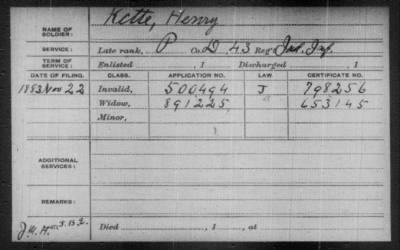 NAME OF SOLDIER: Kette, Henry
SERVICE: Late rank, P Co. D, 43 Reg't Ind. Inf.
TERM OF SERVICE: Enlisted , 1 Discharged , 1
DATE OF FILING. CLASS. APPLICATION NO. LAW CERTIFICATE NO.
1883 Nov 22 Invalid, 500494 J 798256
Widow, 891225 653145
Minor,
ADDITIONAL SERVICES:
REMARKS:
Died , 1 , at